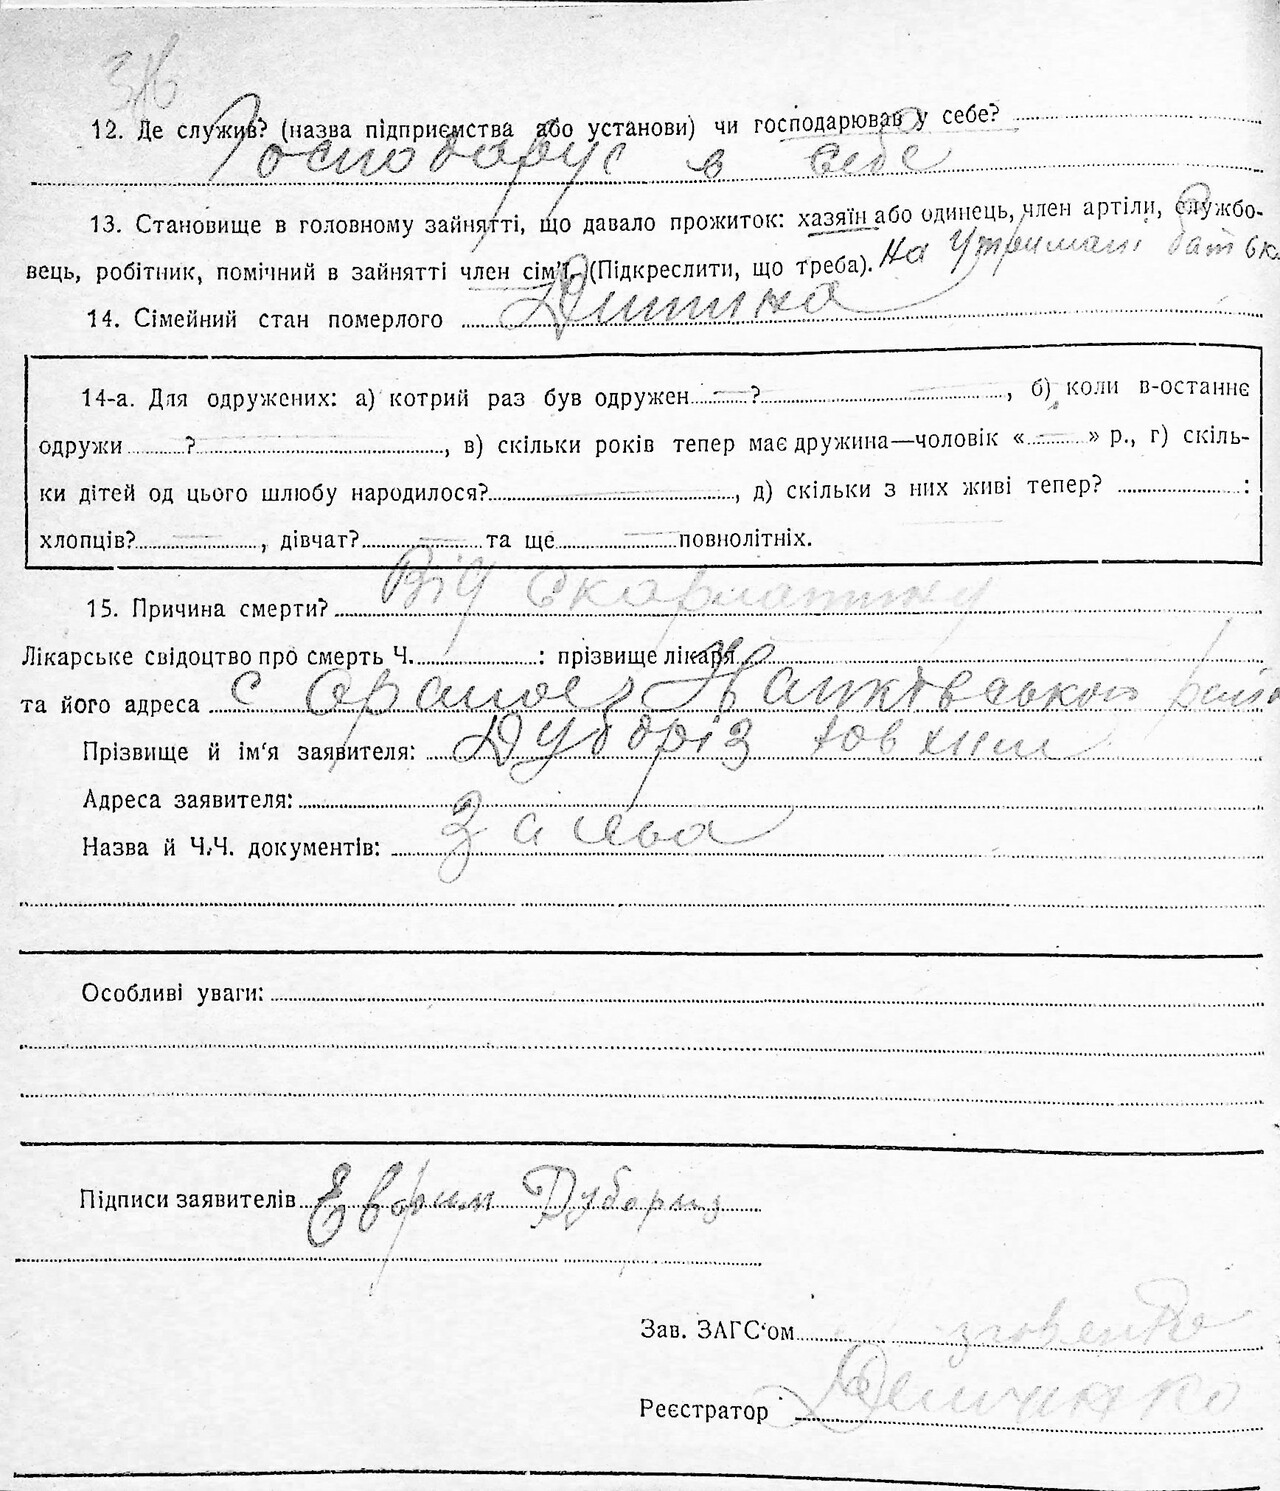 316
12. Де служив? (назва підприємства або установи) чи господарював у себе?
Господарує в себе
13. Становище в головному зайнятті, що давало прожиток: хазяїн або одинець, член артілі, службо-
вець, робітник, помічний в зайнятті член сім'ї. (Підкреслити, що треба). На утримані батьк
14. Сімейний стан померлого Дитина
14-а. Для одружених: а) котрий раз був одружен ? , б) коли в-останнє
одружи ? , в) скільки років тепер має дружина—чоловік « » р., г) скіль-
ки дітей од цього шлюбу народилося? , д) скільки з них живі тепер? :
хлопців? , дівчат? та ще повнолітніх.
15. Причина смерти? Від скарлатини
Лікарське свідоцтво про смерть Ч. : прізвище лікаря
та його адреса с
Прізвище й ім'я заявителя: Дуборіз
Адреса заявителя:
Назва й Ч.Ч. документів: Заява
Особливі уваги:
Підписи заявителів Евфим Дубориз
Зав. ЗАГС'ом
Реєстратор Демченко